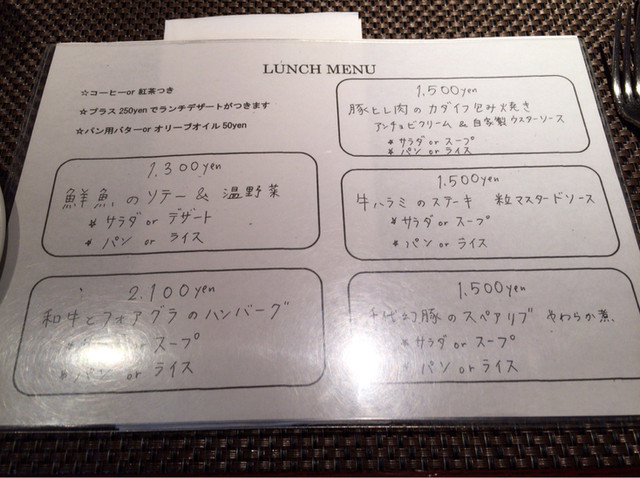 LUNCH MENU
☆コーヒーor 紅茶つき
☆プラス 250yenでランチデザートがつきます
☆パン用バターor オリーブオイル 50yen
1,300yen
鮮魚のソテー & 温野菜
* サラダ or デザート
* パン or ライス
2,100yen
和牛とフォアグラのハンバーグ
* サラダ or スープ
* パン or ライス
1,500yen
豚ヒレ肉のカダイフ包み焼き
アンチョビクリーム & 自家製ウスターソース
* サラダ or スープ
* パン or ライス
1,500yen
牛ハラミのステーキ 粒マスタードソース
* サラダ or スープ
* パン or ライス
1,500yen
千代幻豚のスペアリブ やわらか煮
* サラダ or スープ
* パン or ライス